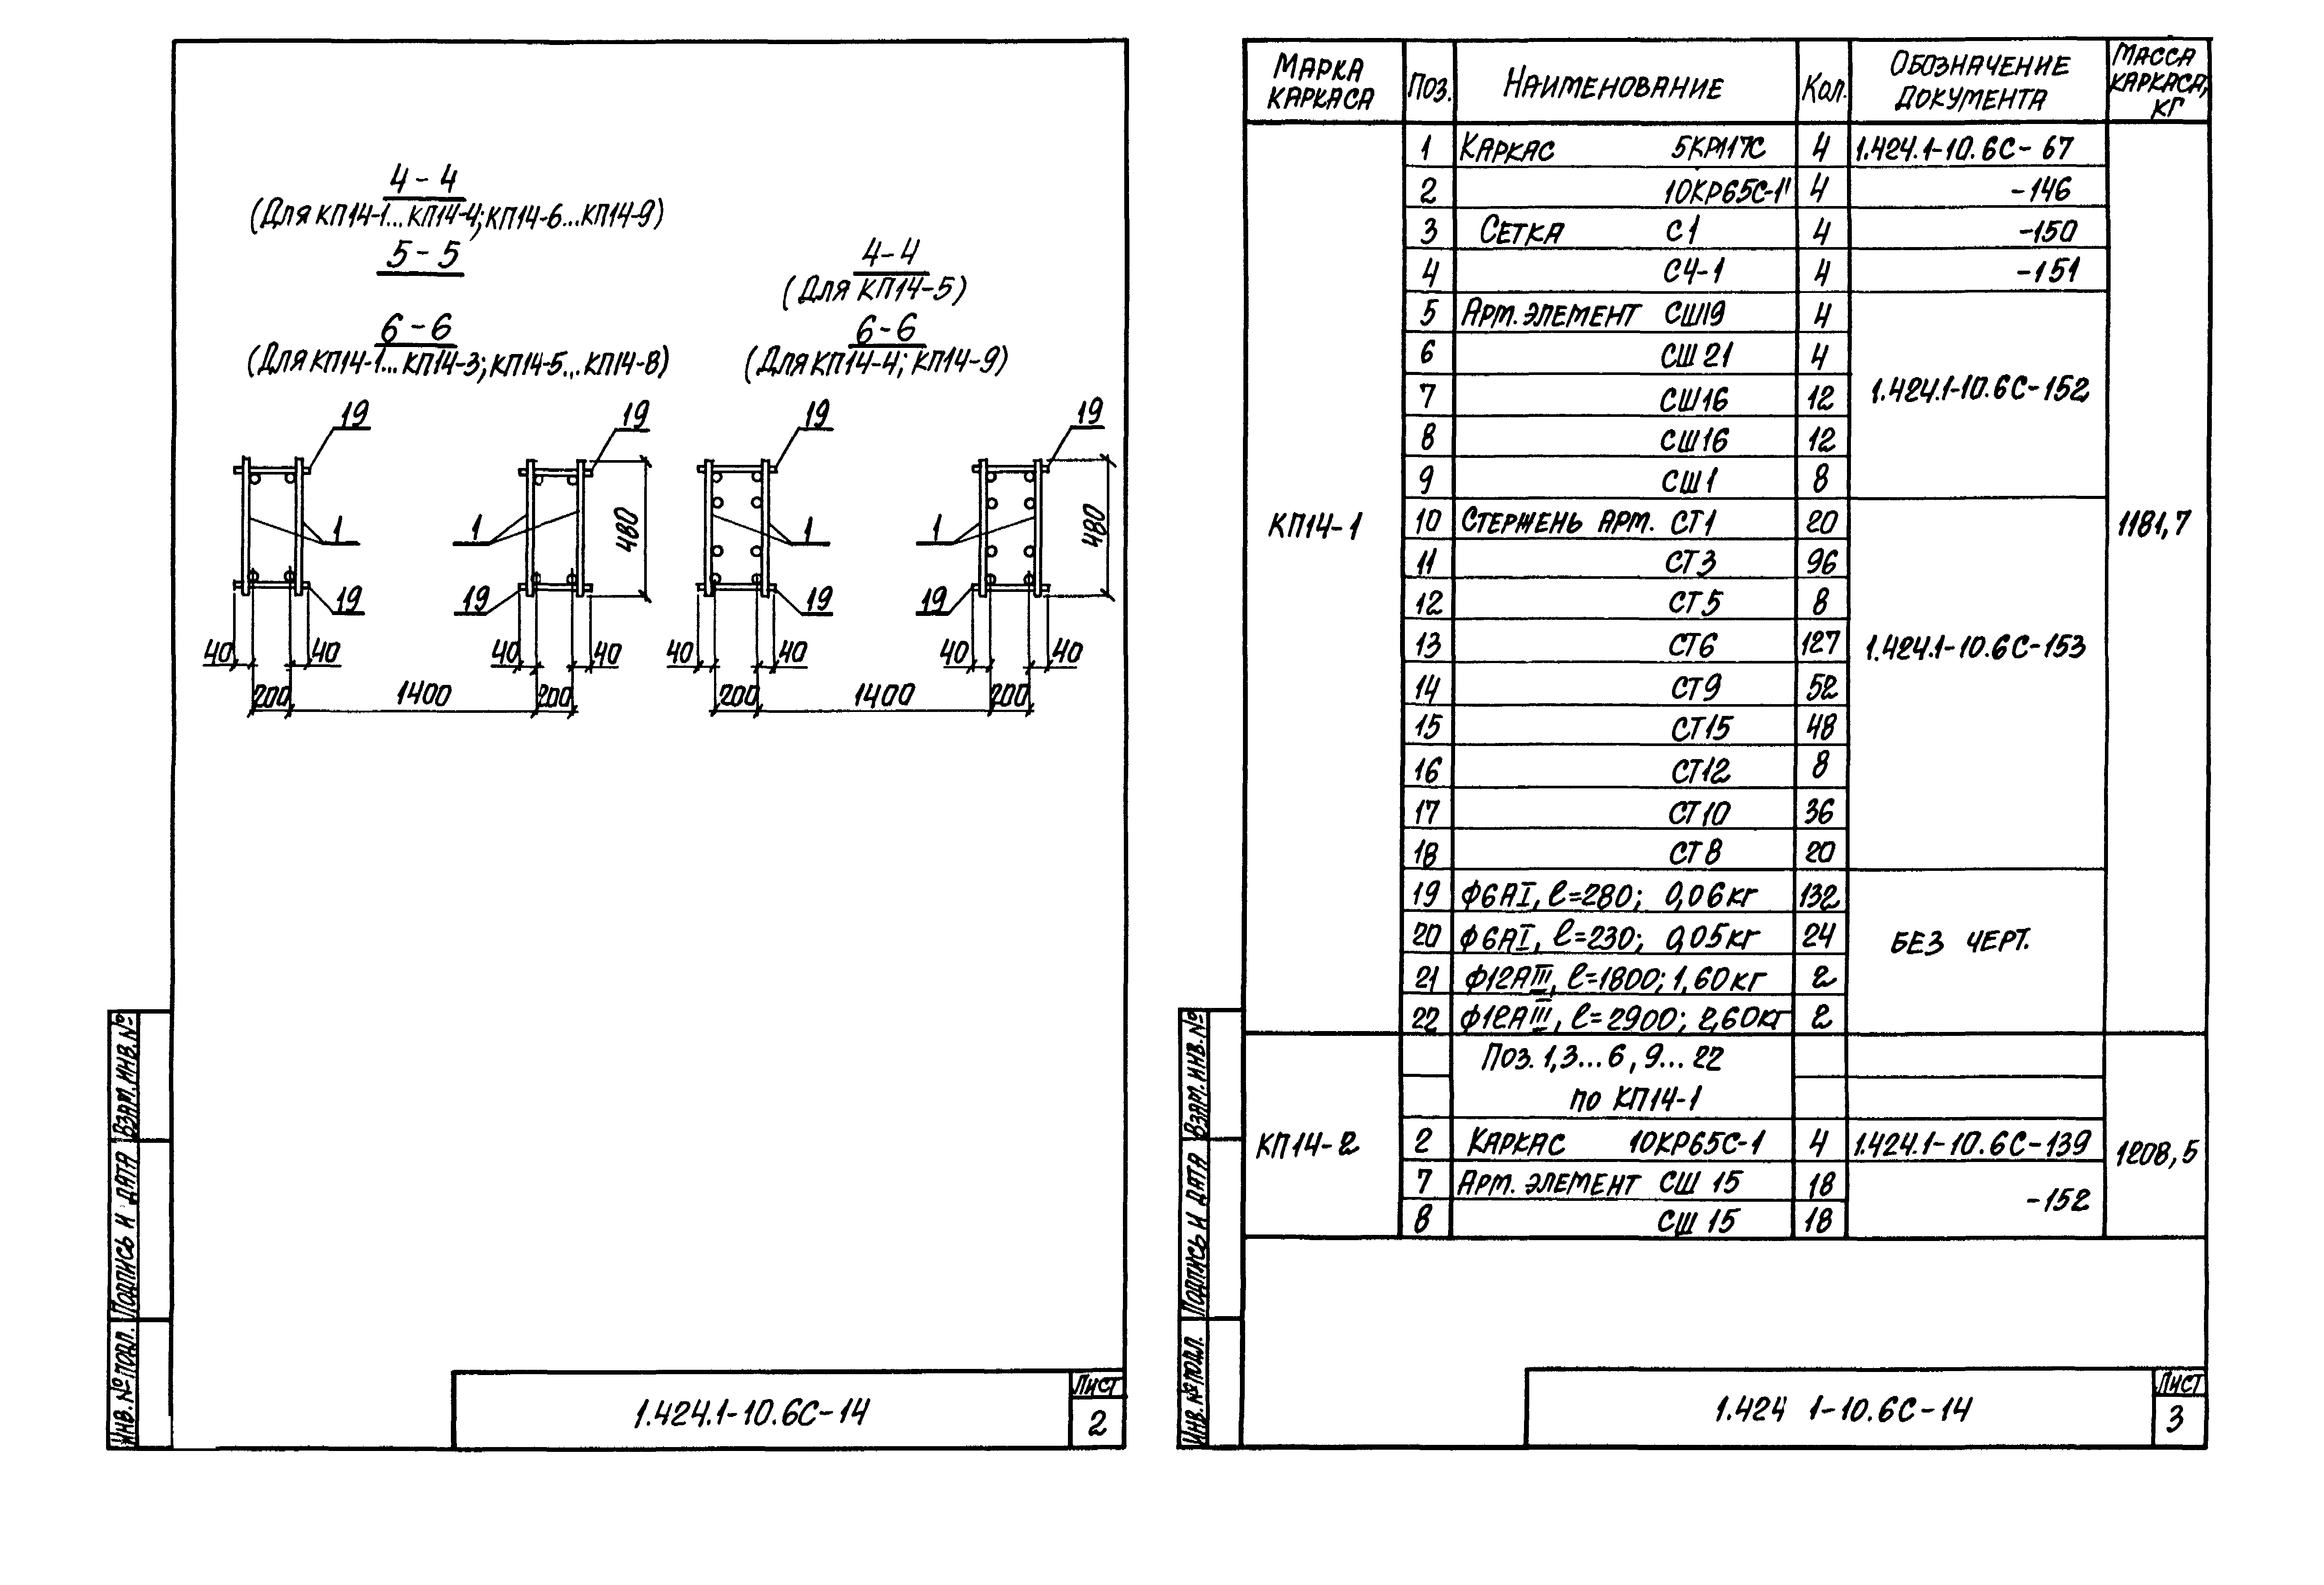 4-4
(Для КП14-1...КП14-4; КП14-6...КП14-9)
5-5
6-6
(Для КП14-1...КП14-3; КП14-5...КП14-8)
4-4
(Для КП14-5)
6-6
(Для КП14-4; КП14-9)
19 19 19 19
1 1 480 1 1 480
19 19 19 19
40 40 40 40 40 40 40 40
200 1400 200 200 1400 200
ИНВ. № ПОДЛ. ПОДПИСЬ И ДАТА ВЗАМ. ИНВ. №
1.424.1-10.6С-14
Лист
2
МАРКА КАРКАСА ПОЗ. НАИМЕНОВАНИЕ КОЛ. ОБОЗНАЧЕНИЕ ДОКУМЕНТА МАССА КАРКАСА, КГ
КП14-1 1181,7
1 КАРКАС 5КР117С 4 1.424.1-10.6С-67
2 10КР65С-1' 4 -146
3 СЕТКА С1 4 -150
4 С4-1 4 -151
5 АРМ. ЭЛЕМЕНТ СШ19 4
6 СШ21 4
7 СШ16 12 1.424.1-10.6С-152
8 СШ16 12
9 СШ1 8
10 СТЕРЖЕНЬ АРМ. СТ1 20
11 СТ3 96
12 СТ5 8
13 СТ6 127 1.424.1-10.6С-153
14 СТ9 52
15 СТ15 48
16 СТ12 8
17 СТ10 36
18 СТ8 20
19 Ф6АI, ℓ=280; 0,06кг 132
20 Ф6АI, ℓ=230; 0,05кг 24 БЕЗ ЧЕРТ.
21 Ф12АIII, ℓ=1800; 1,60кг 2
22 Ф12АIII, ℓ=2900; 2,60кг 2
ПОЗ. 1,3...6, 9...22
по КП14-1
КП14-2 1208,5
2 КАРКАС 10КР65С-1 4 1.424.1-10.6С-139
7 АРМ. ЭЛЕМЕНТ СШ 15 18 -152
8 СШ 15 18
ИНВ. № ПОДЛ. ПОДПИСЬ И ДАТА ВЗАМ. ИНВ. №
1.424 1-10.6С-14
Лист
3